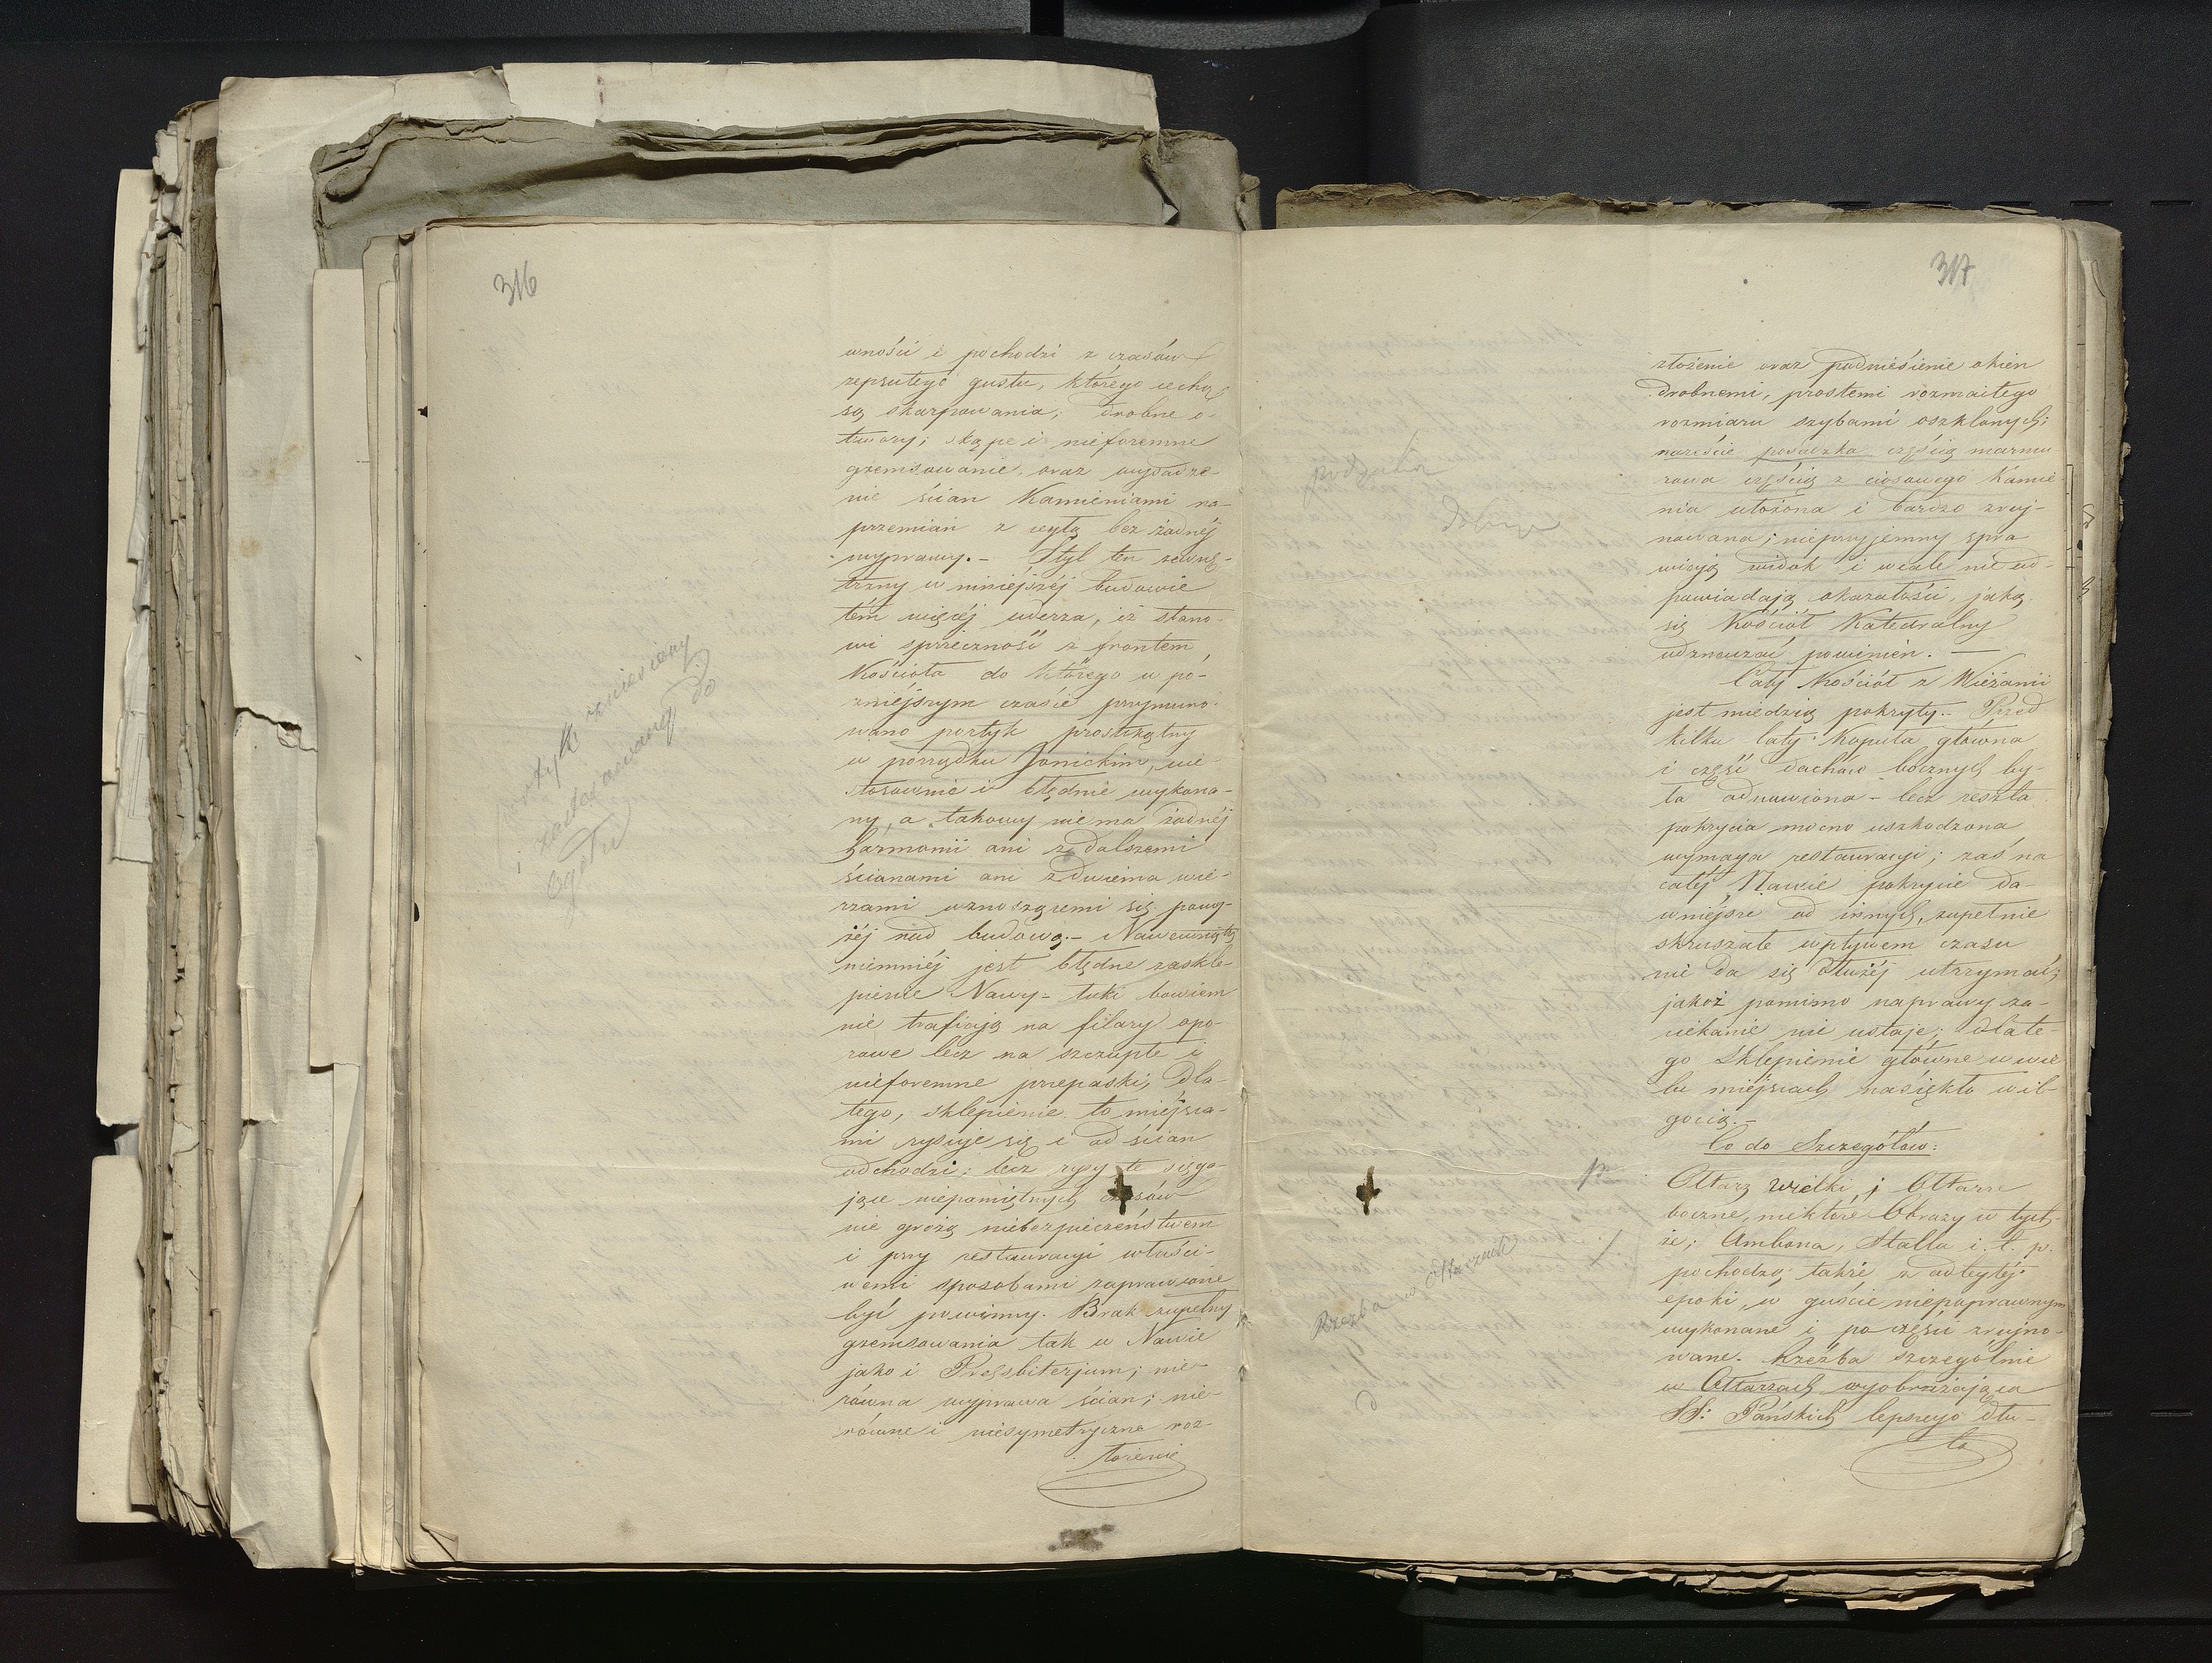 316
wności i pochodzi z czasów
zepsutego gustu, którego cechą
są skarpowania; drobne o-
twory; skąpe i nieforemne
gzemsowanie, oraz wysadze-
nie ścian Kamieniami na-
przemian z cegłą bez żadnéj
wyprawy. – Styl ten zewnę-
trzny w niniejszéj budowie
tém więcéj uderza, iż stano-
wi sprzeczność z frontem
Kościoła do którego w po-
zniéjszym czasie przymuro-
wano portyk prostokątny
w porządku Jonickim, nie-
stosownie i błędnie wykona-
ny, a takowy niema żadnéj
harmonii ani z dalszemi
ścianami ani z dwiema wie-
rzami wznoszącemi się powy-
żéj nad budowę. – Nawewnątrz
niemniéj jest błędne zaskle-
pienie Nawy – łuki bowiem
nie trafiają na filary opo-
rowe lecz na szczupłe i
nieforemne przepaski; dla-
tego, sklepienie to miéjsca-
mi rysuje się i od ścian
odchodzi; lecz rysy te sięga-
jące niepamiętnych czasów
nie grożą niebezpieczeństwem
i przy restauracyi właści-
wemi sposobami zaprawione
być powinny. Brak zupełny
gzemsowania tak w Nawie
jako i Presbiterjum; nie-
równa wyprawa ścian; nie-
równe i niesymetryczne roz-
łożenie
portyk wzniesiony
i zastosowany do
317
złożenie oraz podniesienie okien
drobnemi, prostemi rozmaitego
rozmiaru szybami oszklonych;
nareście posadzka częścią marmu-
rowa częścią z ciosowego Kamie-
nia ułożona i bardzo zruj-
nowana; nieprzyjemny spra-
wiają widok i wcale nie od-
powiadają okazałości, jaką
się Kościół Katedralny
odznaczać powinien. —
Cały Kościół z Wieżami
jest miedzią pokryty. – Przed
kilku laty Kopuła główna
i część dachów bocznych by-
ła odnowiona – lecz reszta
pokrycia mocno uszkodzona
wymaga restauracyi; zaś na
całéj Nawie pokrycie da-
wniejsze od innych, zupełnie
skruszałe wpływem czasu
nie da się dłużéj utrzymać;
jakoż pomimo naprawy za-
ciekanie nie ustaje; dlate-
go Sklepienie główne w wie-
lu miejscach nasiękło wil-
gocią. –
Co do Szczegółów:
Ołtarz wielki, i Ołtarze
boczne, niektóre Obrazy w tych-
że; Ambona, Stalla i. t. p.
pochodzą także z odległéj
epoki, w guście niepoprawnym
wykonane i po części zrujno-
wane. Rzeźba szczególnie
w Ołtarzach wyobrażająca
SS: Pańskich lepszego dłu-
ta
Rzeźba w Ołtarzach